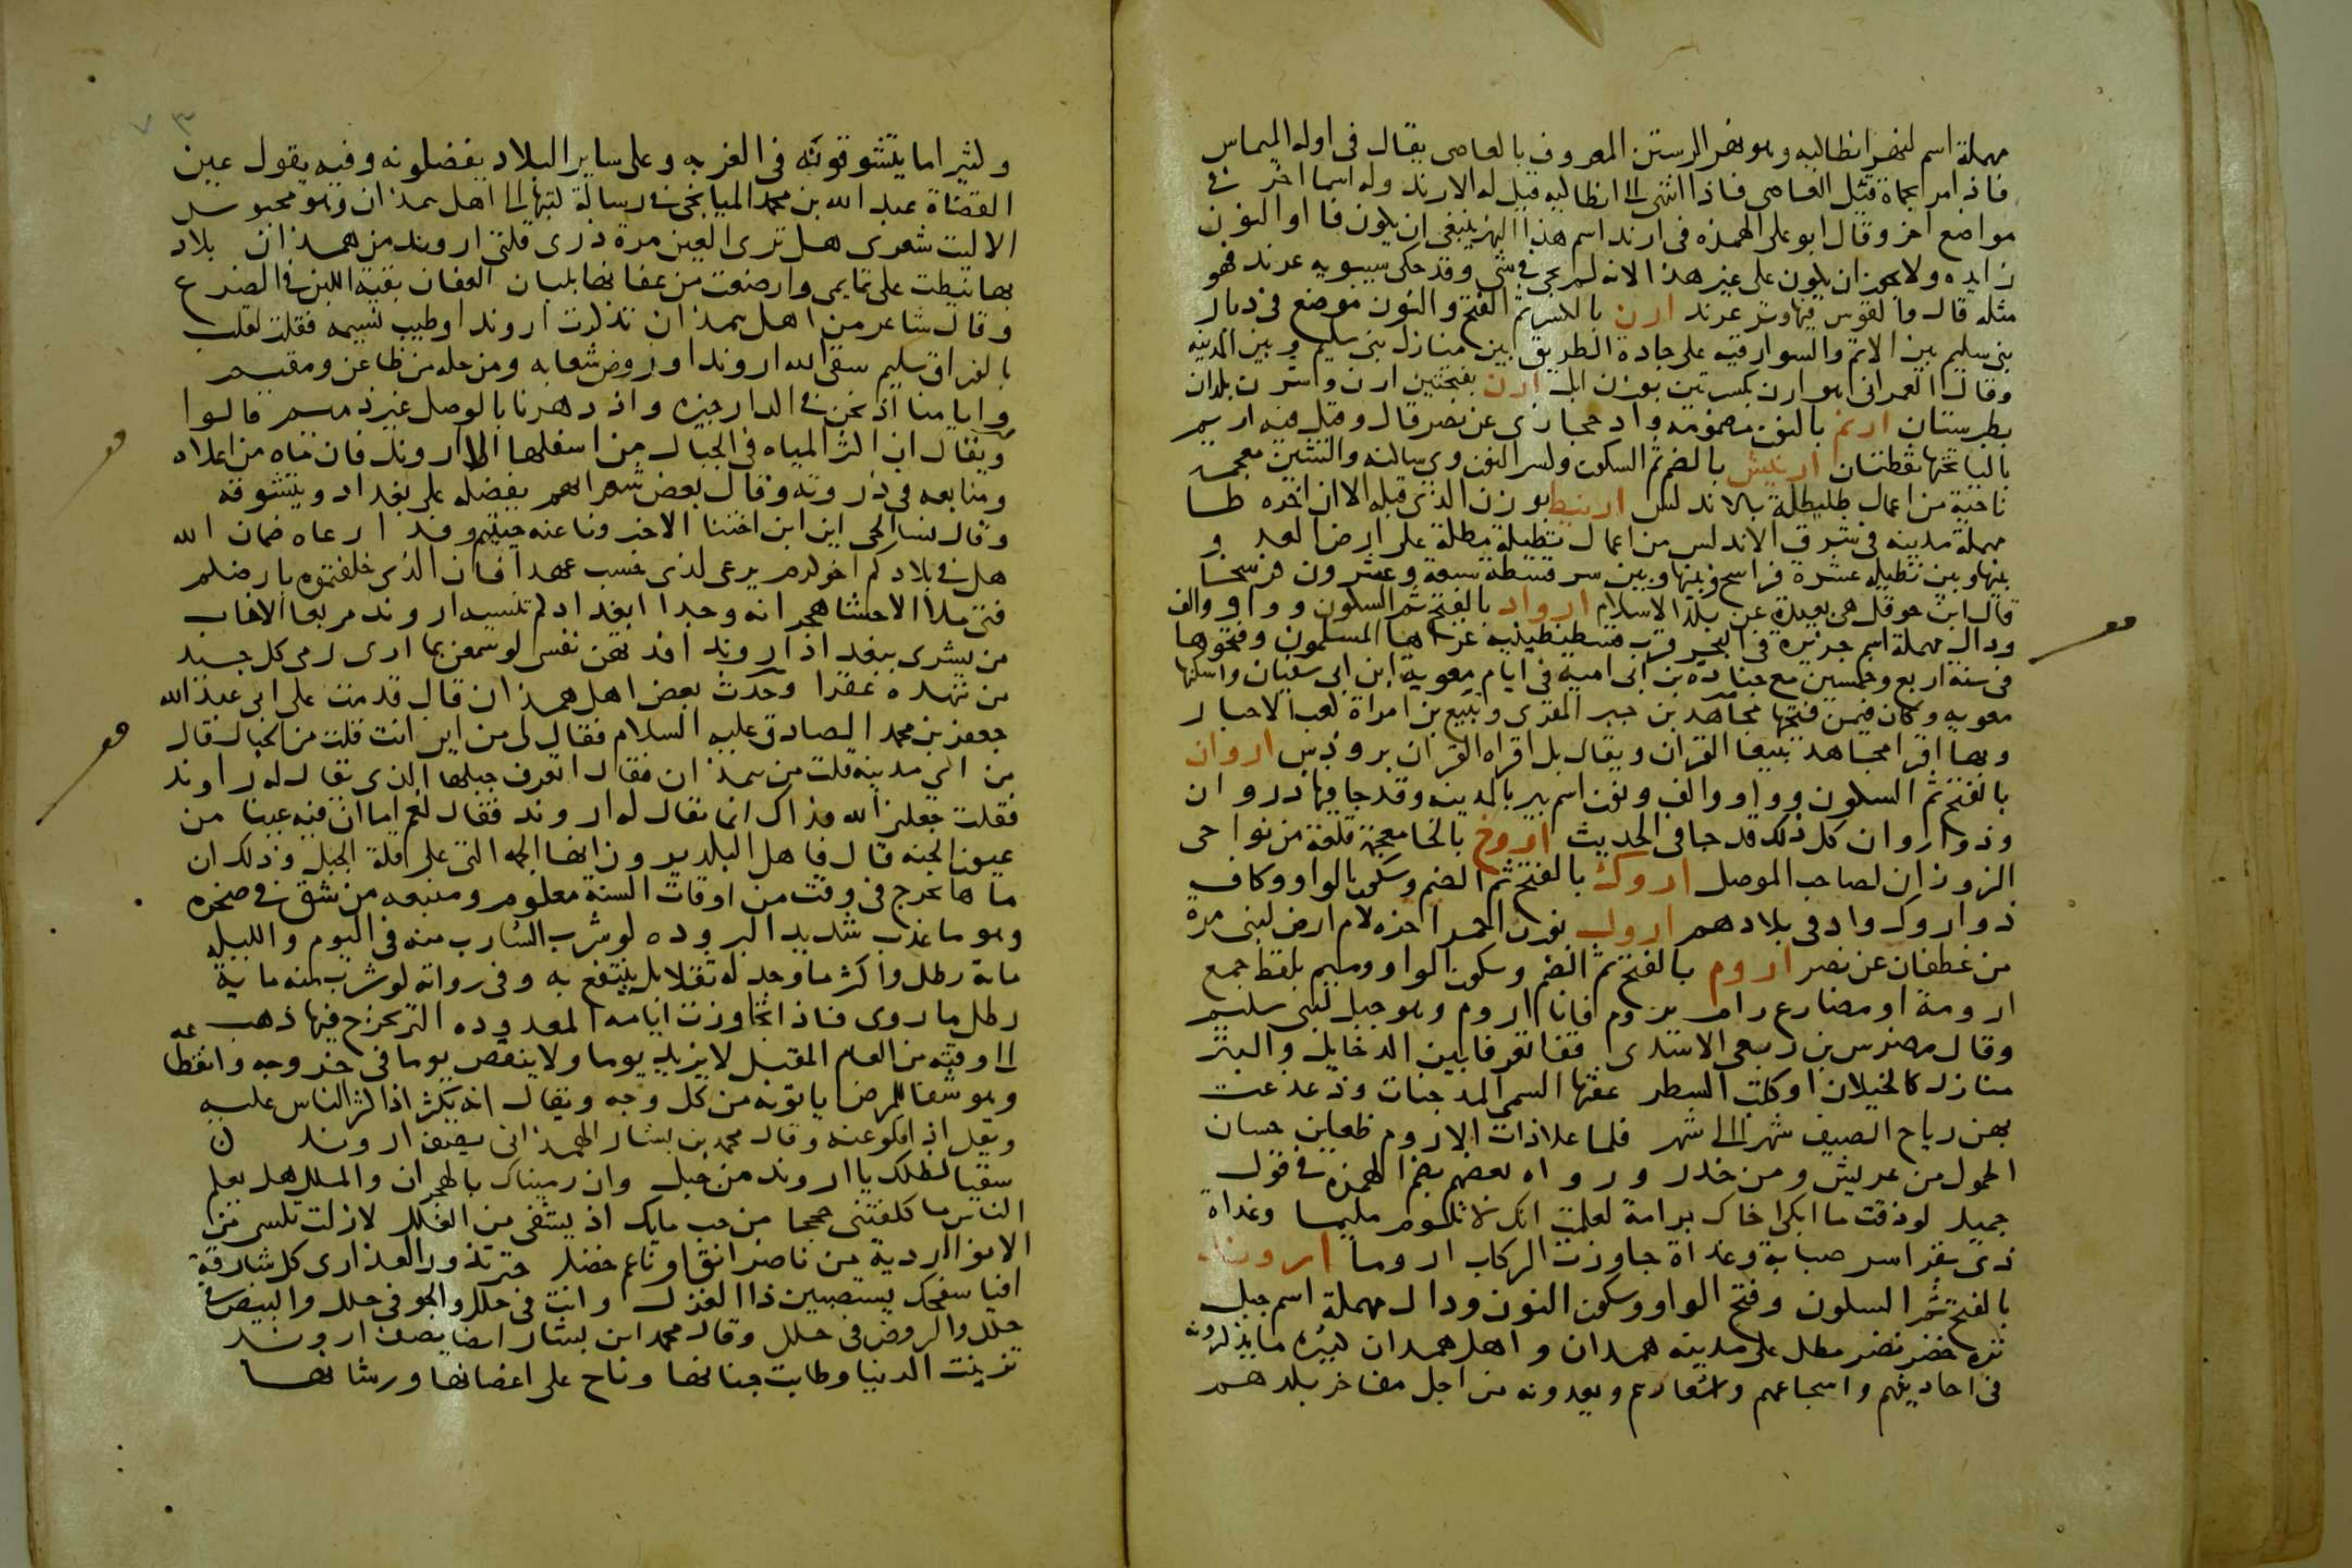 مهملة اسم لنهر انطاكيه وهو نهر الرستن المعروف بالعاصى يقال فى اوله الميماس
فاذا مر بحماة قيل العاصى فاذا انتهى الى انطاكيه قيل له الارند وله اسما اخر فى
مواضع اخر وقال ابو على الهمزه فى ارند اسم هذا النهر ينبغى ان يكون فا والنون
زايده ولا يجوز ان يكون على غير هذا الانه لم يجى فى شى وقد حكى سيبويه عرند فهو
مثله قال والقوس فيها وتر عرند ارن بالكسر ثم الفتح والنون موضع فى ديار
بنى سليم بين الاتم والسوارقيه على جادة الطريق بين منازل بنى سليم وبين المدينه
وقال العمرانى هو ارن بكسرتين بوزن ابل ارن بفتحتين ارن واشرن بلدان
بطبرستان ارنم بالنون مضمومه واد حجازى عن نصر قال وقيل فيه اريم
باليا تحتها نقطتان ارنيش بالضم ثم السكون وكسر النون وى ساكنه والشين معجمه
ناحية من اعمال طليطلة بالاندلس ارنيط بوزن الذى قبله الا ان اخره طا
مهملة مدينه فى شرق الاندلس من اعمال تطيلة مطلة على ارض العدو
بينها وبين تطيله عشرة فراسخ وبينها وبين سرقسطه سبعة وعشرون فرسخا
قال ابن حوقل هى بعيدة عن بلد الاسلام ارواد بالفتح ثم السكون وواو والف
ودال مهملة اسم جزيرة فى البحر قرب قسطنطينيه غزاها المسلمون وفتحوها
فى سنة اربع وخمسين مع جناده بن ابى امية فى ايام معوية ابن ابى سفيان واسكنها
معويه وكان فيمن فتحها مجاهد بن جبر المقرى وتبيع بن امراة كعب الاحبار
وبها اقرا مجاهد تبيعا القران ويقال بل اقراه القران برودس اروان
بالفتح ثم السكون وواو والف ونون اسم بير بالمدينه وقد جا فيها ذروان
وذو اروان كل ذلك قد جا فى الحديث اروخ بالخا معجمة قلعة من نواحى
الزوزان لصاحب الموصل اروك بالفتح ثم الضم وسكون الواو وكاف
ذو اروك واد فى بلادهم ارول بوزن الحمر اخره لام ارض لبنى مره
من غطفان عن نصر اروم بالفتح ثم الضم وسكون الواو وميم بلفظ جمع
ارومة او مضارع رام يروم فانا اروم وهو جبل لبنى سليم
وقال مضرس بن ربعى الاسدى قفا تعرفا بين الدخايل والبتر
منازل كالخيلان او كتب السطر عفتها السمى المدجنات وزعزعت
بهن رياح الصيف شهرا الى شهر فلما علا ذات الاروم ظعاين حسان
الحمول من عريش ومن خدر ورواه بعضهم بضم الهمزه فى قول
جميل لو ذقت ما ابكى اخاك برامة لعلمت انك لا تلوم مليما وغداة
ذى بقر اسر صبابة وغداة جاوزت الركاب اروما اروند
بالفتح ثم السكون وفتح الواو وسكون النون ودال مهملة اسم جبل
نزه خضر نضر مطل على مدينه همدان واهل همدان كثيره ما يذكرونه
فى احاديثهم واسجاعهم واشعارهم ويعدونه من اجل مفاخر بلدهم
وكثير اما يتشوقونه فى الغربه وعلى ساير البلاد يفضلونه وفيه يقول عين
القضاة عبد الله بن محمد الميانجى فى رسالة كتبها الى اهل همذان وهو محبوس
الا ليت شعرى هل ترى العين مرة ذرى قلتى اروند من همذان بلاد
بها نيطت على تمايمى وارضعت من عفافها بلبان العفان بقية اللبن فى الضرع
وقال شاعر من اهل همذان تذكرت اروند او طيب نسيمه فقلت لقلب
بالفراق سليم سقى الله اروندا وروض شعابه ومن حله من ظاعن ومقيم
وايامنا اذ نحن فى الدار جيره واذ دهرنا بالوصل غير ذميم قالوا
ويقال ان اكثر المياه فى الجبال من اسفلها الا اروند فان ماه من اعلاه
ومنابعه فى ذروته وقال بعض شعرائهم يفضله على بغداد ويتشوقه
وقال نسا الحى اين ابن اختنا الا خبرونا عنه حييتم وفدا رعاه ضمان الله
هل فى بلادكم اخو كرم يرعى لذى حسب عهدا فان الذى خلفتموه بارضكم
فتى ملا الاحشا هجرانه وجدا ابغدادكم تنسيه اروند مربعا الا خاب
من يشرى ببغداذ اروند افدتهن نفسى لو سمعن بما ارى رمى كل جيد
من تنهده عقدا وحدث بعض اهل همذان قال قدمت على ابى عبد الله
جعفر بن محمد الصادق عليه السلام فقال لى من اين انت قلت من الجبال قال
من اى مدينه قلت من همذان فقال اتعرف جبلها الذى يقال له راوند
فقلت جعلنى الله فداك انما يقال له اروند فقال نعم اما ان فيه عينا من
عيون الجنه قال فاهل البلد يرون انها الجمه التى على قلة الجبل وذلك ان
ماها يخرج فى وقت من اوقات السنة معلوم ومنبعه من شق فى صخره
وهو ما عذب شديد البروده لو شرب الشارب منه فى اليوم والليله
ماية رطل واكثر ما وجد له ثقلا بل ينتفع به وفى رواية لو شرب منه ماية
رطل ما روى فاذا تجاوزت ايامه المعدوده التى يخرج فيها ذهب
الى وقته من العام المقبل لا يزيد يوما ولا ينقص يوما فى خروجه وانقطاعه
وهو شفا للمرضى ياتونه من كل وجه ويقال انه يكثر اذا كثر الناس عليه
ويقل اذا قلوا عنه وقال محمد بن بشار الهمذانى يصف اروند
سقيا لظلك يا اروند من جبل وان رميناك بالهجران والملل هل يعلم
الناس ما كلفتنى حججا من حب مايك اذ يشفى من الغلل لا زلت تكسى من
الانوا اردية من ناضر انق او ناعم خضل حتى تزور العذارى كل شارقة
افيا سفحك يستصبين ذا الغزل وانت فى حلل والجو فى حلل والبيض فى
حلل والروض فى حلل وقال محمد ابن بشار ايضا يصف اروند
تزينت الدنيا وطابت جنانها وناح على اغصانها ورشانها